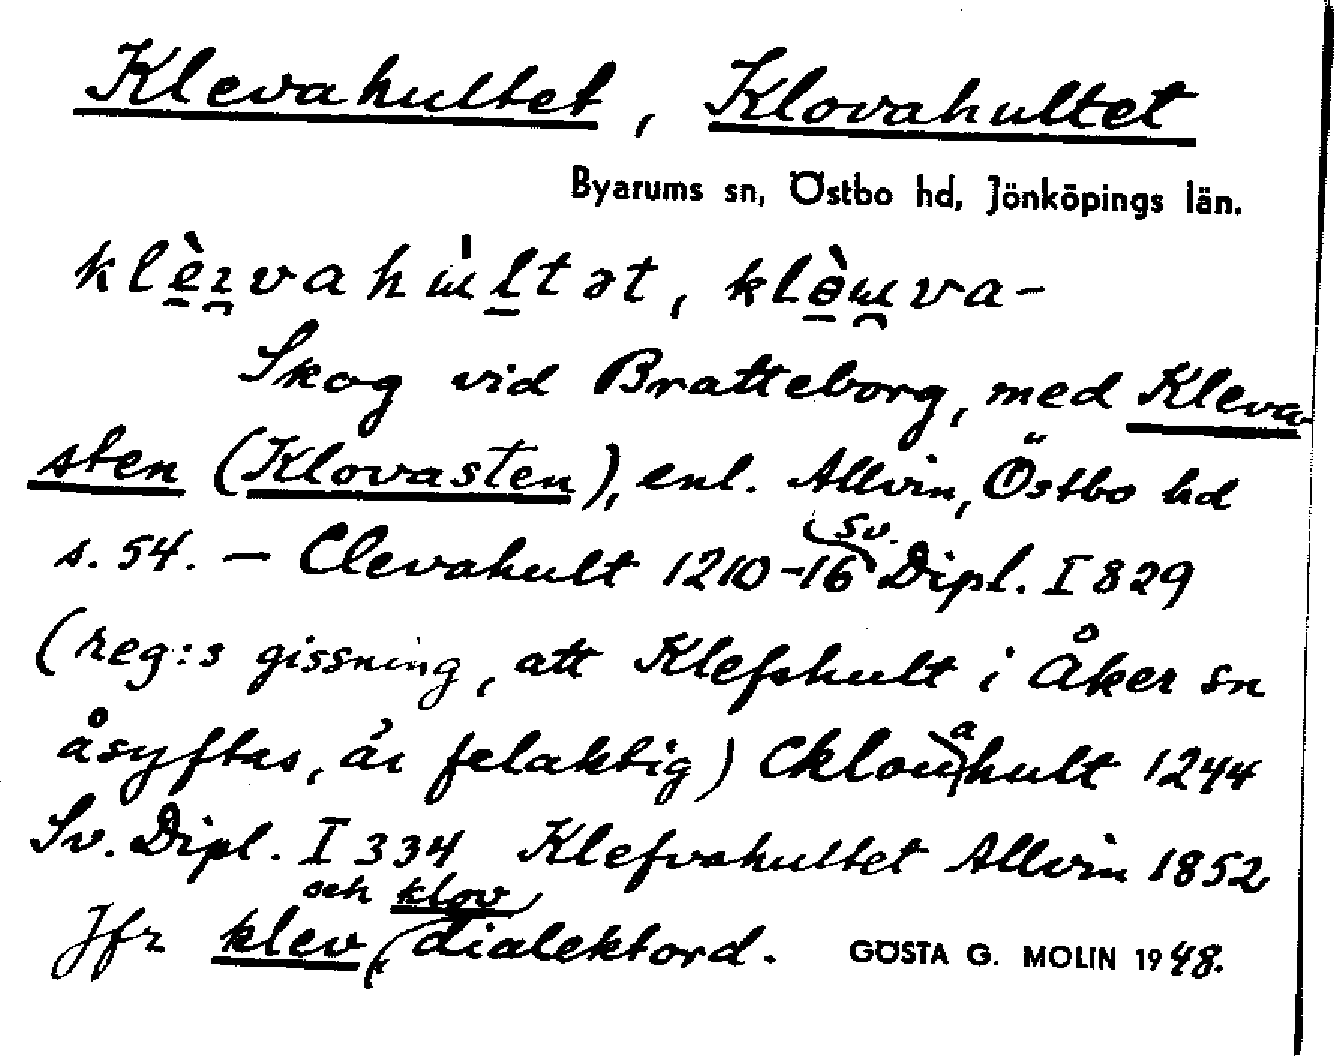 Klevahultet, Klovahultet
Byarums sn, Östbo hd, Jönköpings län.
Skog vid Bratteborg, med Kleva-
sten (Klovasten), enl. Allvin, Östbo hd
s. 54. — Clevahult 1210-16 Sv. Dipl. I 829
(reg:s gissning, att Klefshult i Åker sn
åsyftas, är felaktig) Cklouahult 1244
Sv. Dipl. I 334 Klefvahultet Allvin 1852
Jfr klev och klov, dialektord. GÖSTA G. MOLIN 1948.